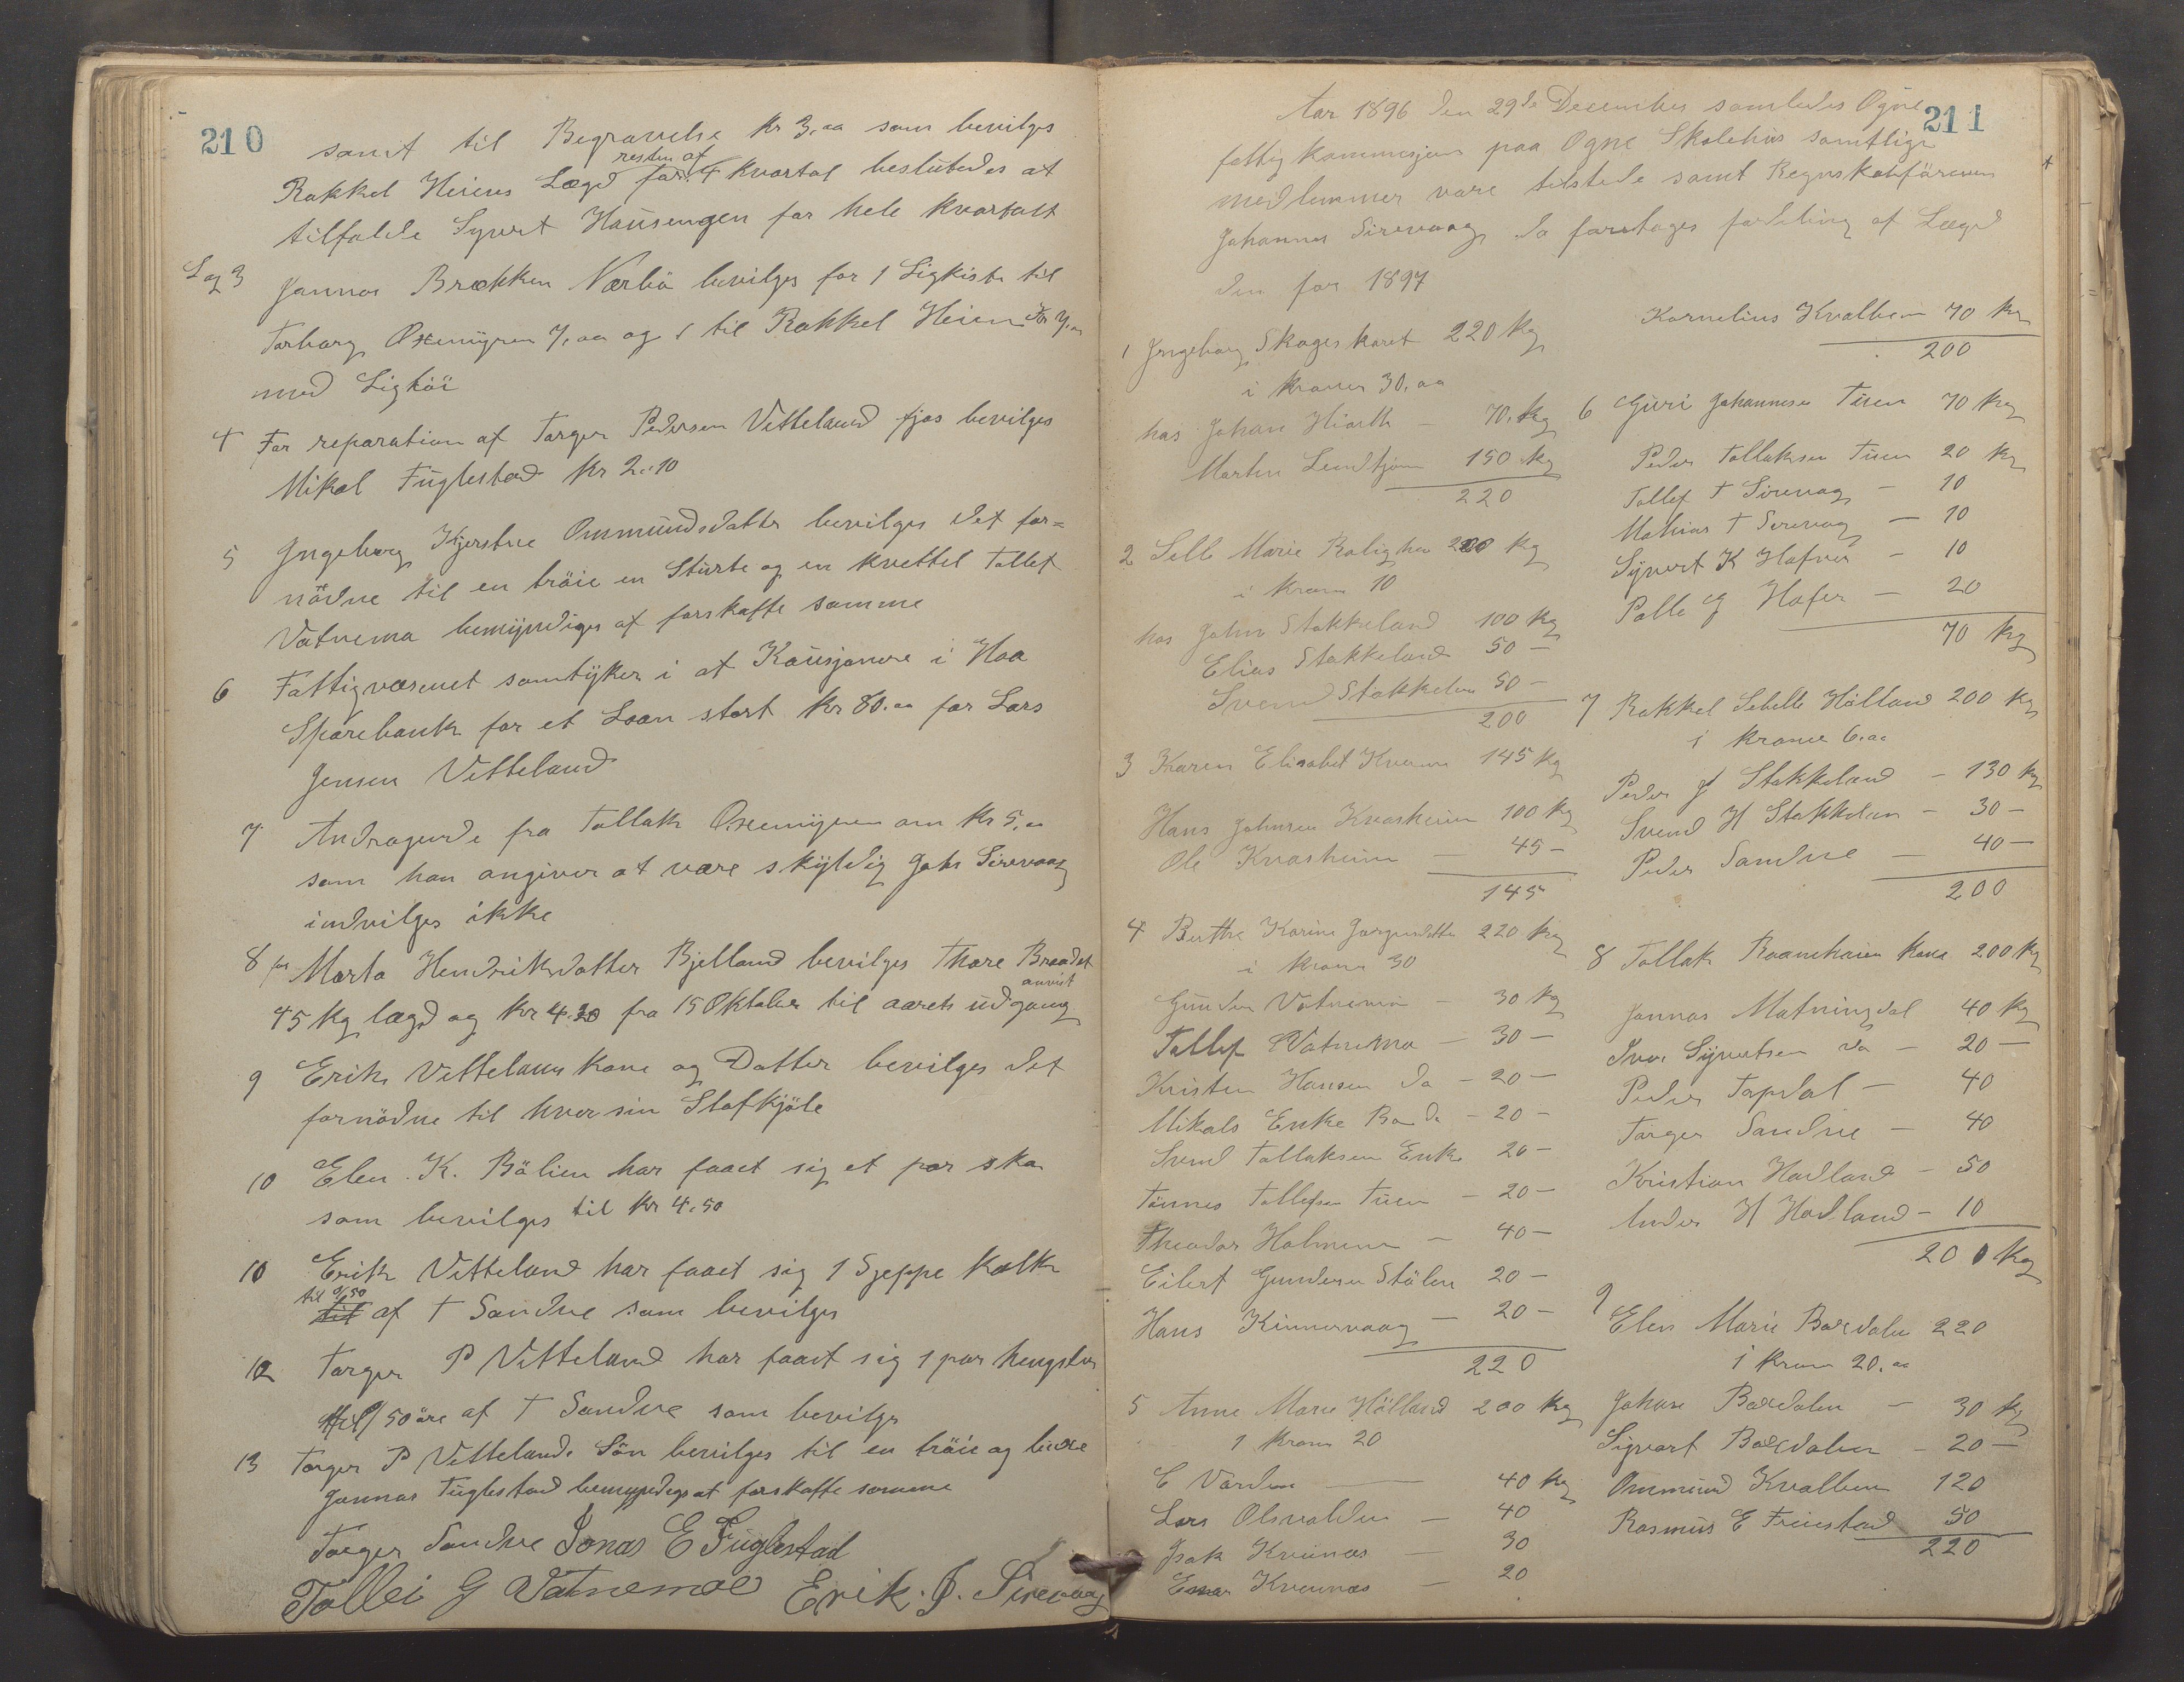 210
samt til Begravelse kr 3,00 som bevilges
Rakkel Heiens Lægd for resten af 4 kvartal beslutedes at
tilfalde Syvert Hausengen for hele kvartalt
Sag 3 Jannas Brækken Nærbö bevilges for 1 Ligkiste til
Torborg Oxemyren 7,00 og 1 til Rakkel Heien kr 7,00
med Ligtöi
4 For reparation af Torger Pedersen Vetteland fjos bevilges
Mikal Fuglestad kr 2,10
5 Ingeborg Kjerstine Ommundsdatter bevilges det for=
nödne til en tröie en Stürte og en kvettel Tollef
Vatnema bemyndiges at forskaffe samme
6 Fattigvæsenet samtyker i at Kausjonere i Haa
Sparebank for et Laan stort kr 80.00 for Lars
Jensen Vetteland
7 Andragende fra Tollak Oxemyren om kr 5,00
som han angiver at være skyldig Johs Sirevaag
indvilges ikke
8 for Marta Hendriksdatter Bjelland bevilges Thore Braadet
anvist
45 kg lægd og kr 4.20 fra 15 Oktober til aarets udgang
9 Erik Vettelands kone og Datter bevilges det
fornödne til hver sin Stofkjöle
10 Elen K. Bölien har faaet sig et par sko
som bevilges til kr 4.50
10 Erik Vetteland har faaet sig 1 Sjeppe Kalk
til 0/50
til af T Sandve som bevilges
12 Torger P Vetteland har faaet sig 1 par hengsler
til 50 öre af T Sandve som bevilges
13 Torger P Vettelands Sön bevilges til en tröie og buxe
Jonnas Fuglestad bemyndiges at forskaffe samme
Torger Sandve Jonas E Fuglestad
Tollei G Vatnemoe Erik. J. Sirevaag
211
Aar 1896 den 29de December samledes Ogne
fattigkommisjon paa Ogne Skolehus samtlige
medlemmer vare tilstede samt Regnskabsföreren
Johannes Sirevaag. da foretages fordeling af Lægd
den for 1897
1 Ingeborg Skageskaret 220 kg
i kroner 30,00
hos Johan Hiorth - 70 kg
Morten Lendtjøn 150 kg
220
2 Selle Marie Rolighe 200 kg
i krone 10
hos John Stokkeland 100 kg
Elias Stokkeland 50 -
Svend Stokkelan 50 -
200
3 Karen Elisabet Kvasn 145 kg
Hans Johnsen Kvasheim 100 kg
Ole Kvasheim - 45 -
145
4 Berthe Karine Jorgensdatte 220 kg
i krone 30
Gunder Vatnema - 30 kg
Tollef Vatnema - 30 -
Kristen Hansen do - 20 -
Mikals Enke Ba do - 20 -
Svend Tollaksen Enke 20 -
Tönnes Tollefsen Tuen - 20 -
Theodor Holmen - 40 -
Eilert Gundersen Stölen 20 -
Hans Kinnervaag - 20 -
220
5 Anne Marie Hölland 200 kg
i krone 20
C Varden - 40 kg
Lars Olsvolden - 40
Isak Kvennæs - 30
Einar Kvennæs - 20
Kornelius Kvalbein 70 kg
200
6 Guri Johannesen Tuen 70 kg
Peder Tollaksen Tuen 20 kg
Tollef T Sirevaag - 10
Mathias T Sirevaag - 10
Syvert K Hafner - 10
Palle G Hafer - 20
70 kg
7 Rakkel Sebelle Hölland 200 kg
i krone 6,00
Peder J Stokkeland - 130 kg
Svend H Stokkelan - 30 -
Peder Sandve - 40 -
200
8 Tollak Raaneheien kone 200 kg
Jonnas Matningdal 40 kg
Ivar Syvertsen do - 20 -
Peder Tapdal - 40
Torger Sandve - 40
Kristian Hadland - 50
Anders H Hadland - 10
200 kg
9
Elen Marie Bordalen 220
i krone 20,00
Johan Bordalen - 30 kg
Sigvart Bordalen - 20 -
Ommund Kvalbein 120
Rasmus E Freistad 50
220